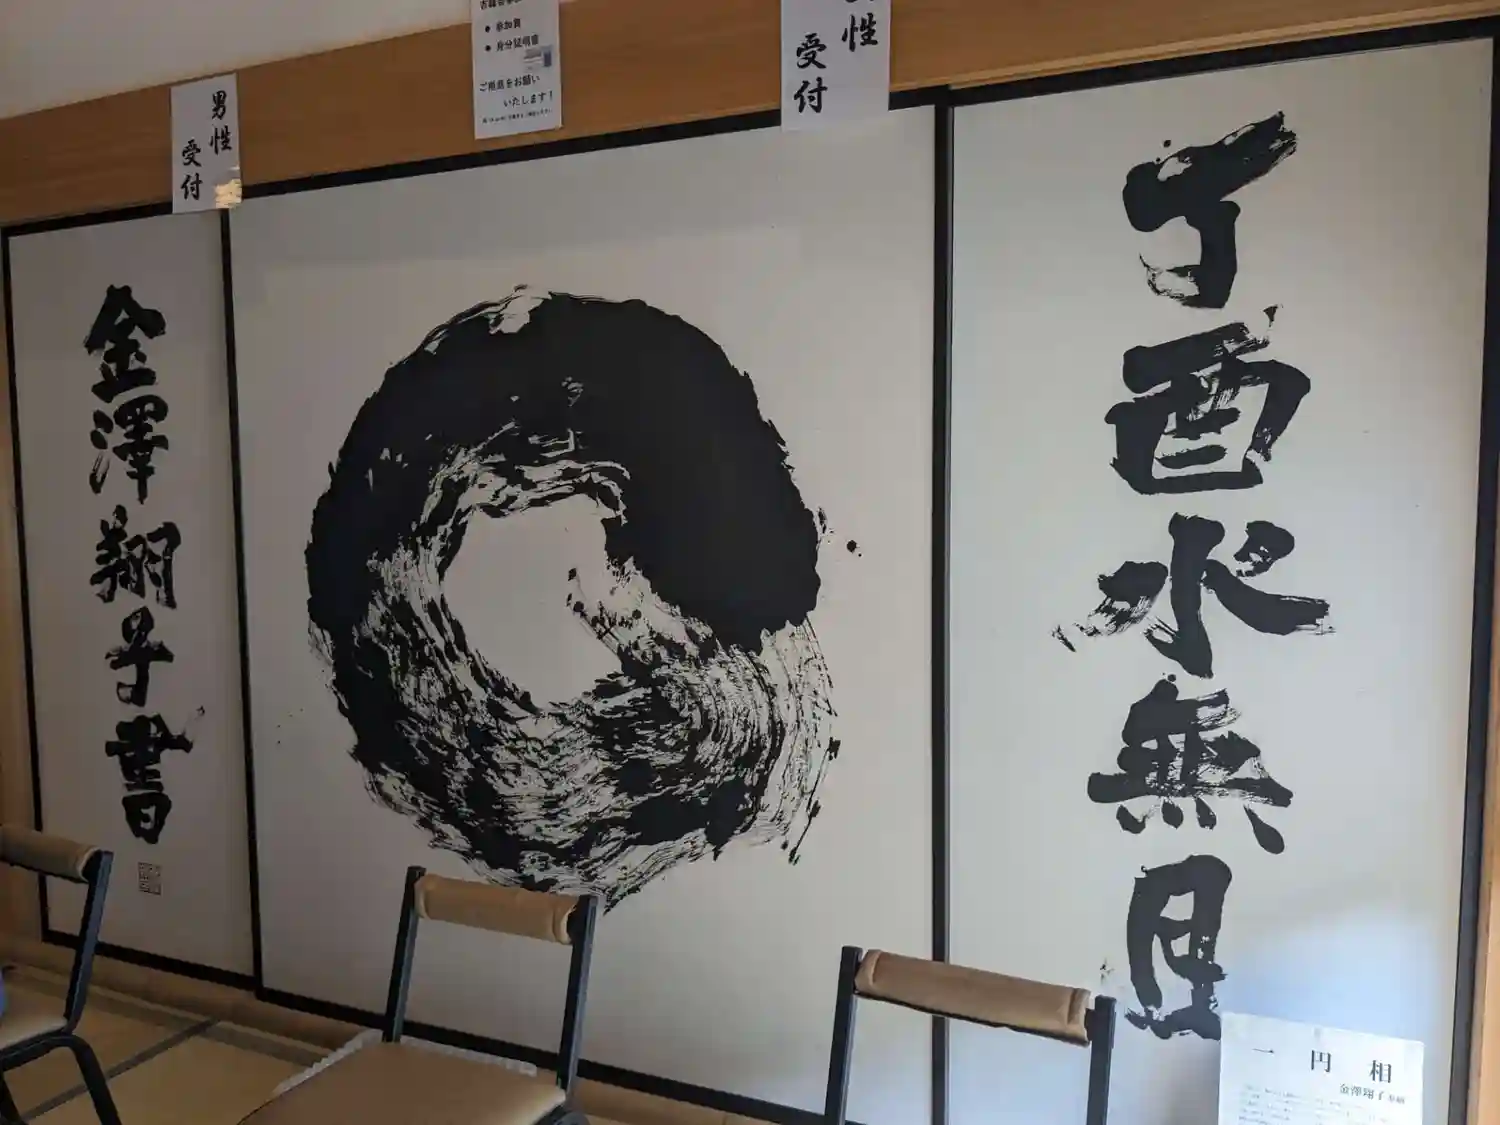 丁酉水無月
金澤翔子書
男性
受付
●参加費
●身分証明書
ご用意をお願い
いたします!
性
受付
一円相
金澤翔子